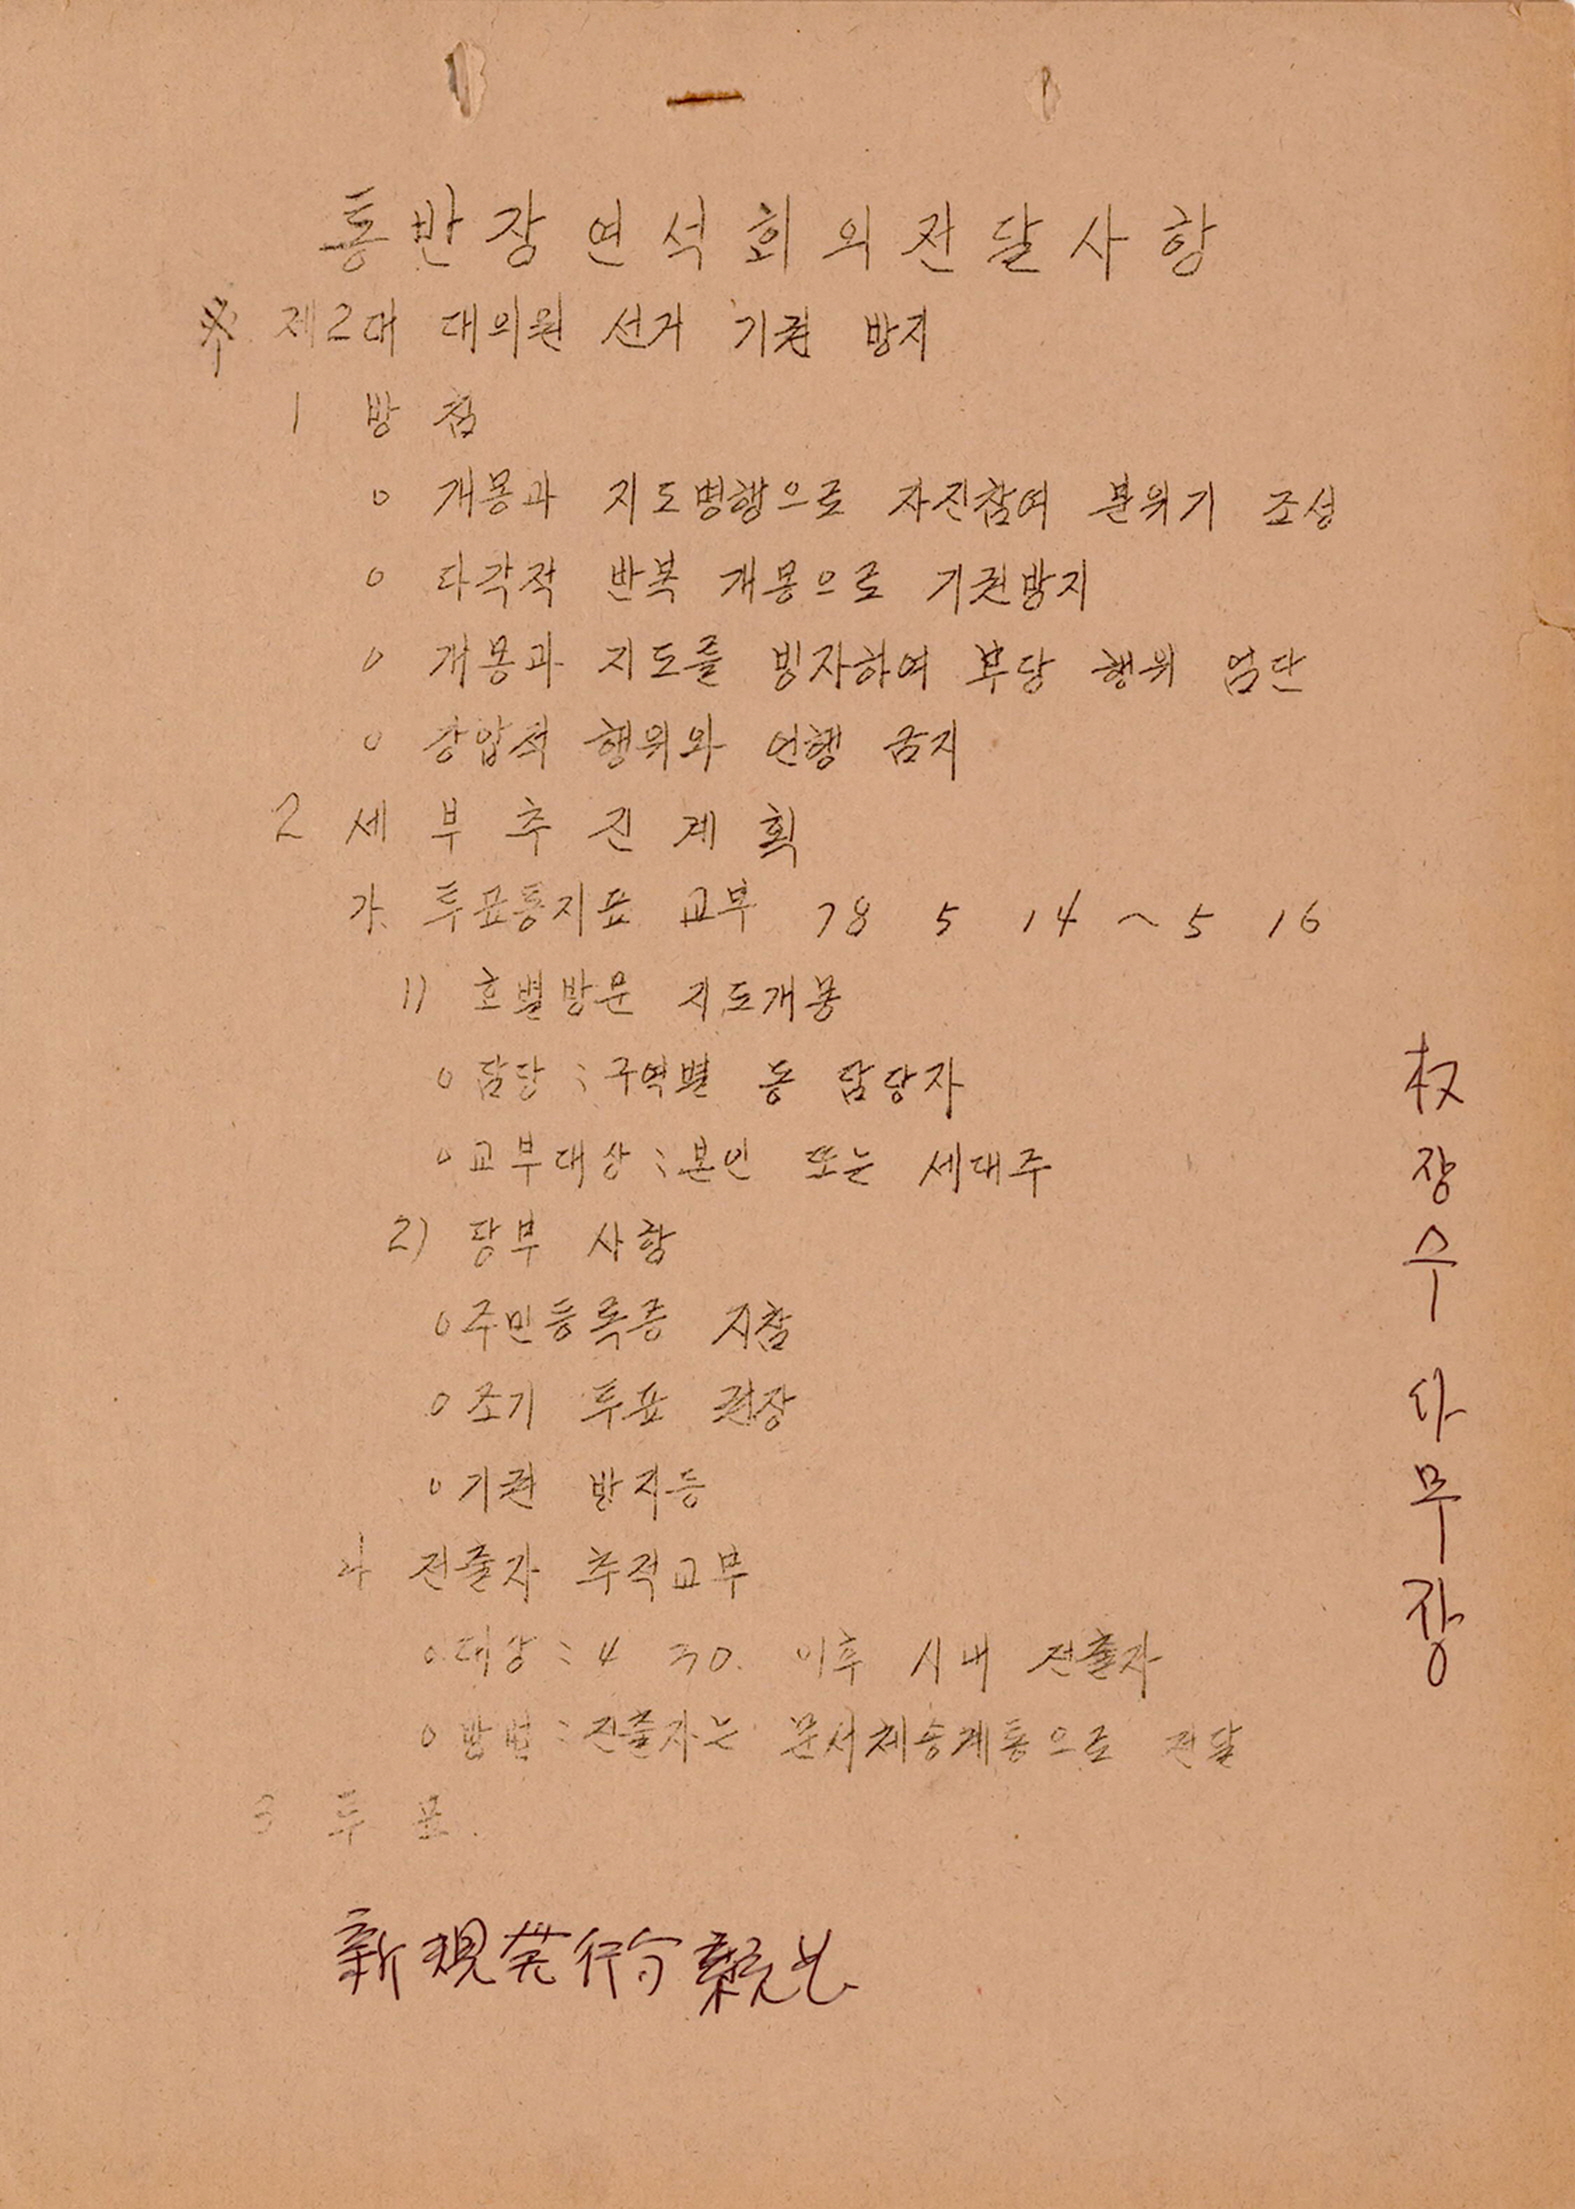 통반장연석회의전달사항
※ 제2대 대의원 선거 기권 방지
1 방침
o 개몽과 지도병행으로 자진참여 분위기 조성
o 다각적 반복 개몽으로 기권방지
o 개몽과 지도를 빙자하여 부당 행위 엄단
o 강압적 행위와 언행 금지
2 세부추진계획
가. 투표통지표 교부 78 5 14 ~ 5 16
1) 호별방문 지도개몽
o 담당 : 구역별 동 담당자
o 교부대상 : 본인 또는 세대주
2) 당부 사항
o 주민등록증 지참
o 조기 투표 권장
o 기권 방지등
나 전출자 추적교부
o 대상 : 4 30. 이후 시내 전출자
o 방법 : 전출자는 문서체송계통으로 전달
3 투표.
新規発行
权 장수 사무장